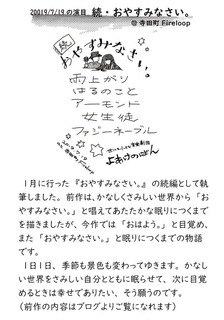 20019/7/19の演目 続・おやすみなさい。
@ 寺田町 Fireloop
続
おやすみなさい。
雨上がり
はるのこと
アーモンド
女生徒
ファジーネーブル
よあけのばん
1月に行った『おやすみなさい。』の続編として執
筆しました。前作は、かなしくさみしい世界から「お
やすみなさい。」と唱えてあたたかな眠りにつくまで
を描きましたが、今作では「おはよう。」と目覚め、
また「おやすみなさい。」と眠りにつくまでの物語
です。
1日1日、季節も景色も変わってゆきます。かなし
い世界をさみしい自分とともに眠らせて、次に目覚
めるときは幸せでありたい、そう願うのです。
(前作の内容はブログよりご覧になれます)